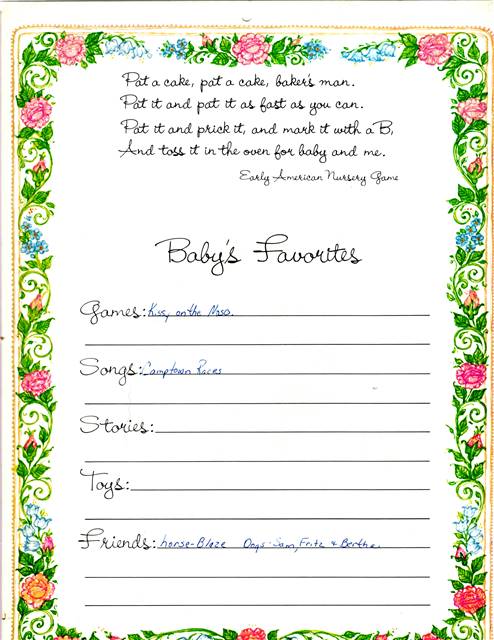 Pat a cake, pat a cake, baker's man.
Pat it and pat it as fast as you can.
Pat it and prick it, and mark it with a B,
And toss it in the oven for baby and me.
Early American Nursery Game
Baby's Favorites
Games: Kiss on the Nose.
Songs: Camptown Races
Stories:
Toys:
Friends: horse-Blaze Dogs-Sam, Fritz & Bertha